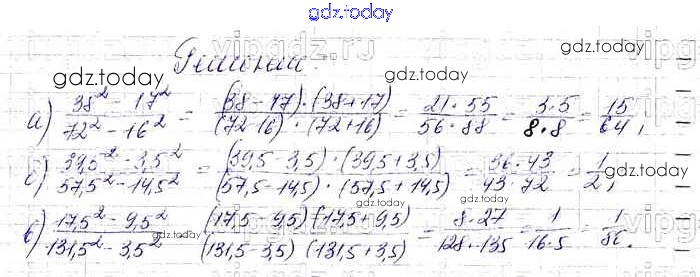 gdz.today
Решение.
gdz.today
gdz.today
а) (38² - 17²)/(72² - 16²) = ((38 - 17)·(38+17))/((72-16)·(72+16)) = (21·55)/(56·88) = (3·5)/(8·8) = 15/64,
с) (39,5² - 3,5²)/(57,5² - 14,5²) = ((39,5-3,5)·(39,5+3,5))/((57,5-14,5)·(57,5+14,5)) = (36·43)/(43·72) = 1/2,
gdz.today
gdz.today
в) (17,5² - 9,5²)/(131,5² - 3,5²) = ((17,5-9,5)(17,5+9,5))/((131,5-3,5)(131,5+3,5)) = (8·27)/(128·135) = 1/(16·5) = 1/80.
gdz.today